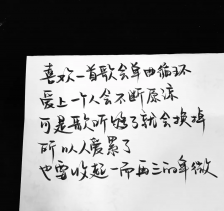 喜欢一首歌会单曲循环
爱上一个人会不断原谅
可是歌听够了就会换掉
所以人爱累了
也要收起一而再三的卑微